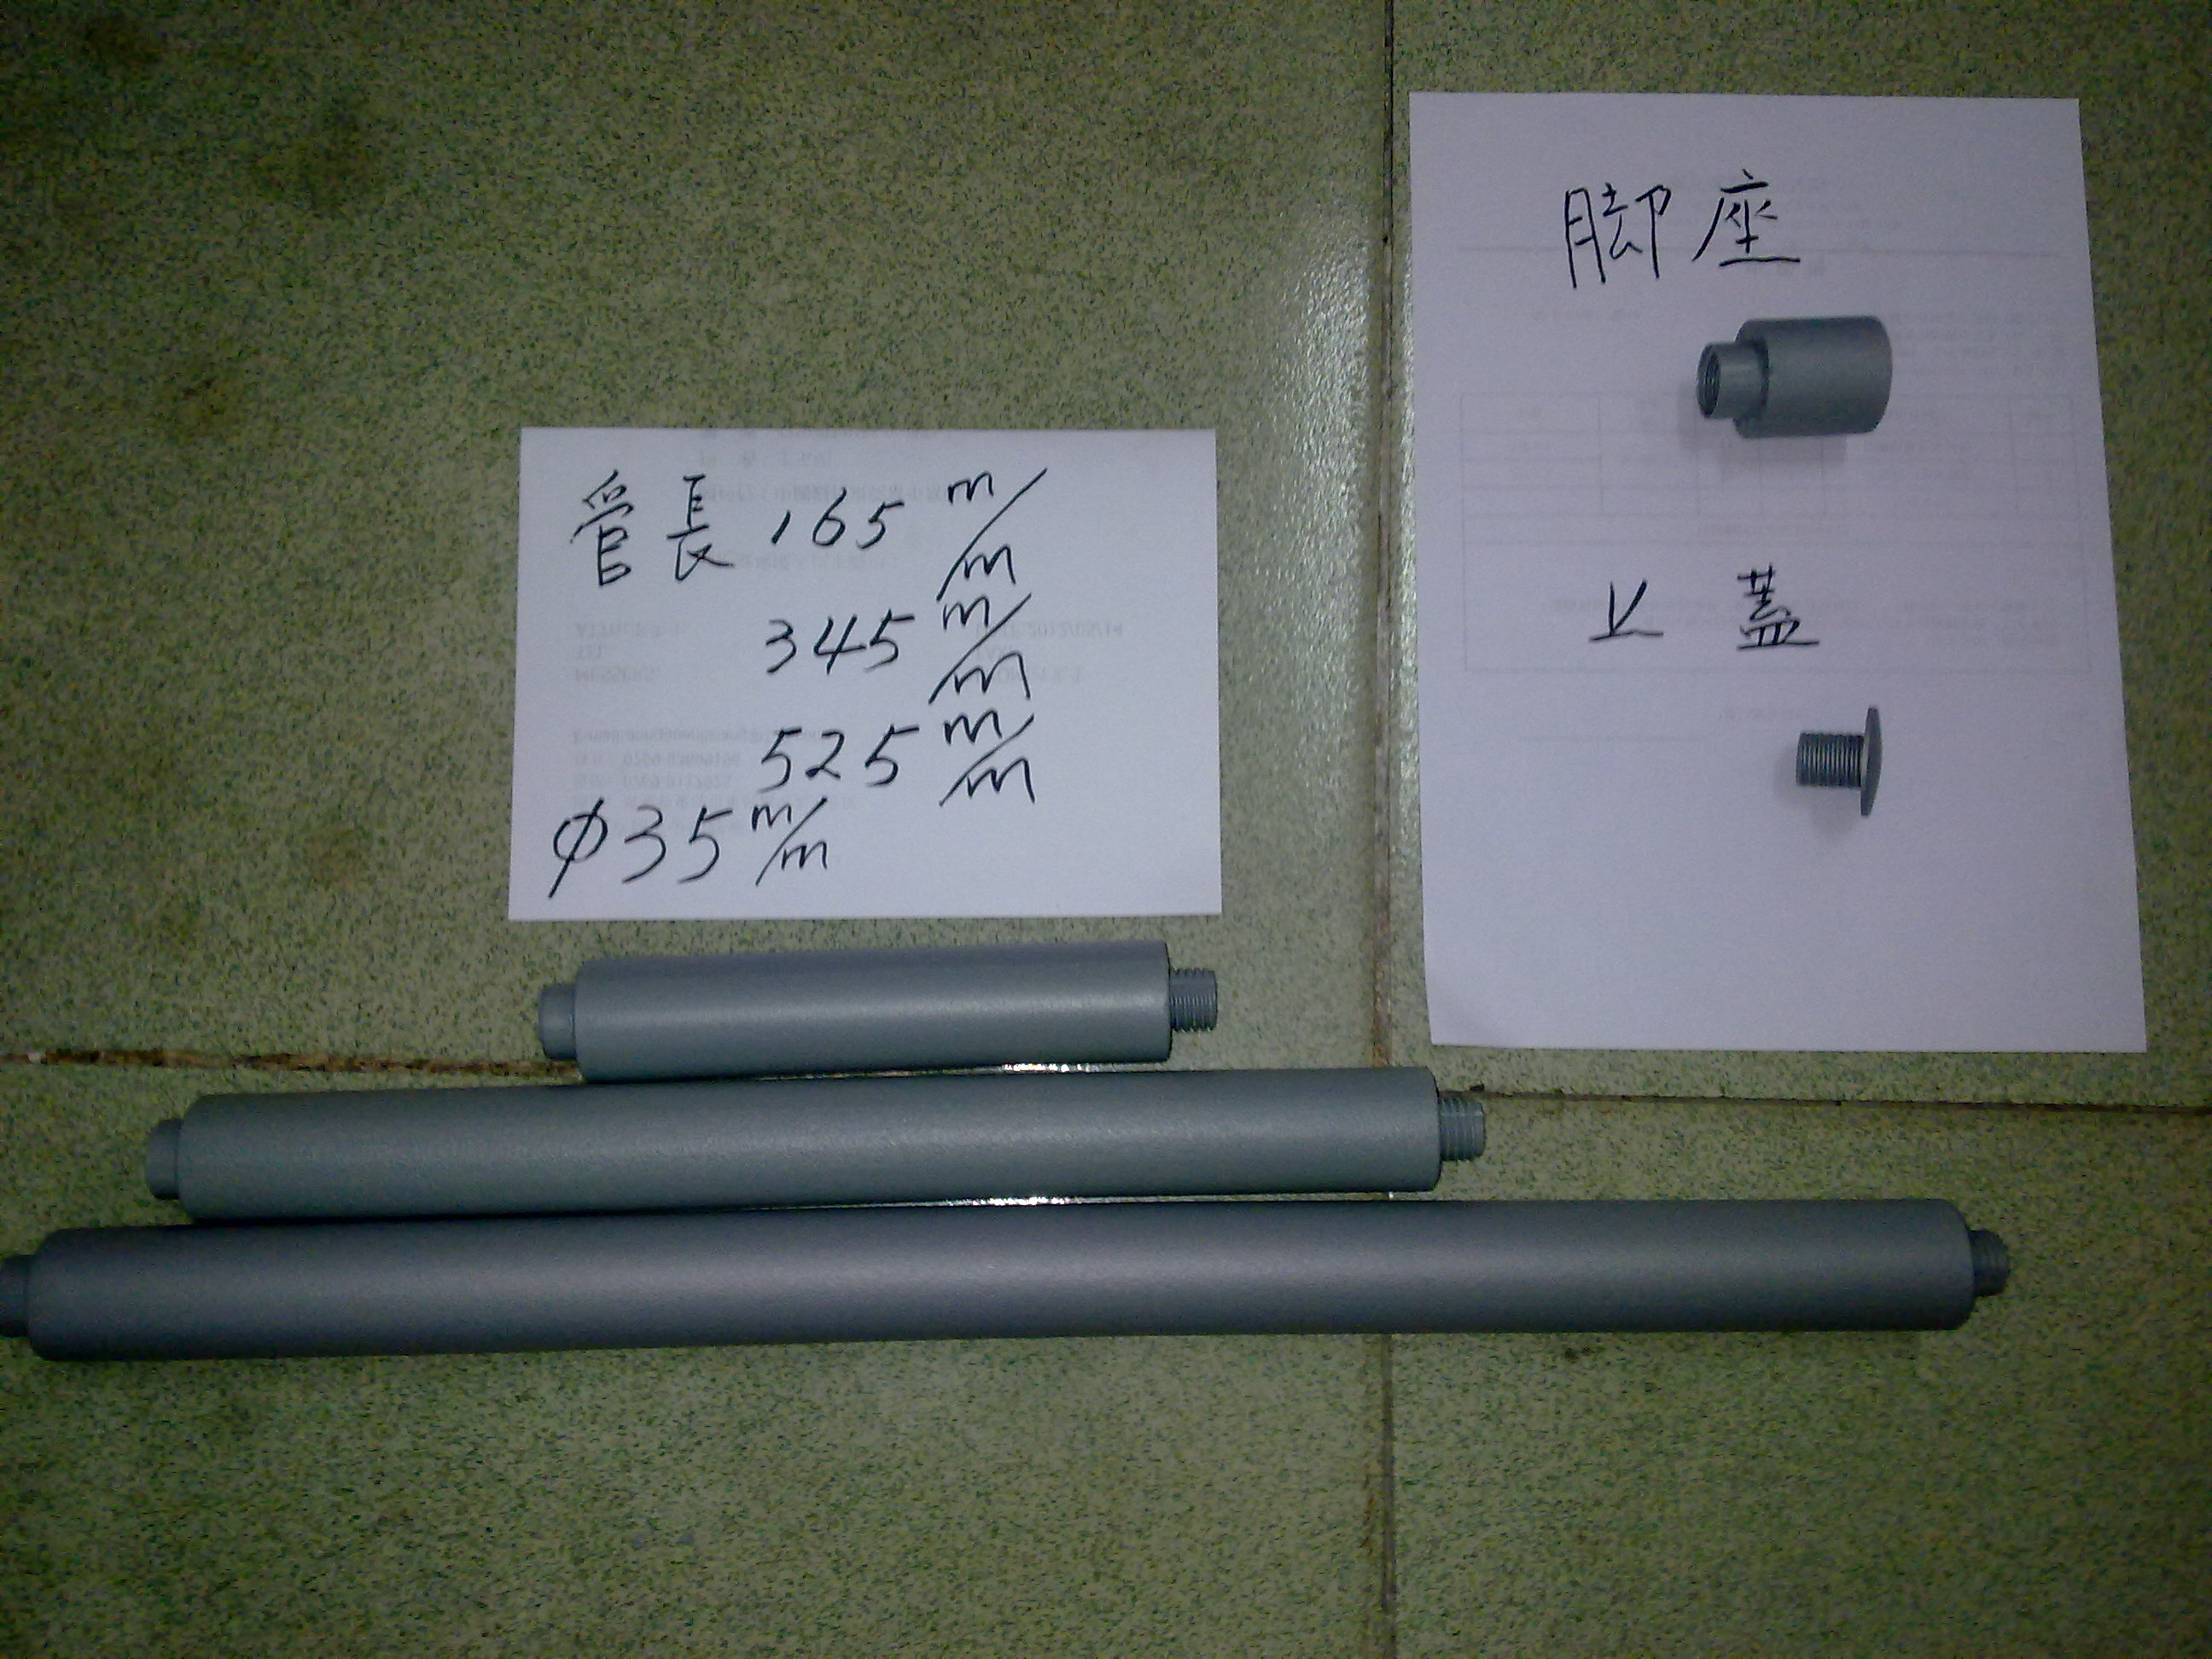 管長 165 m/m
345 m/m
525 m/m
φ35 m/m
脚座
止蓋